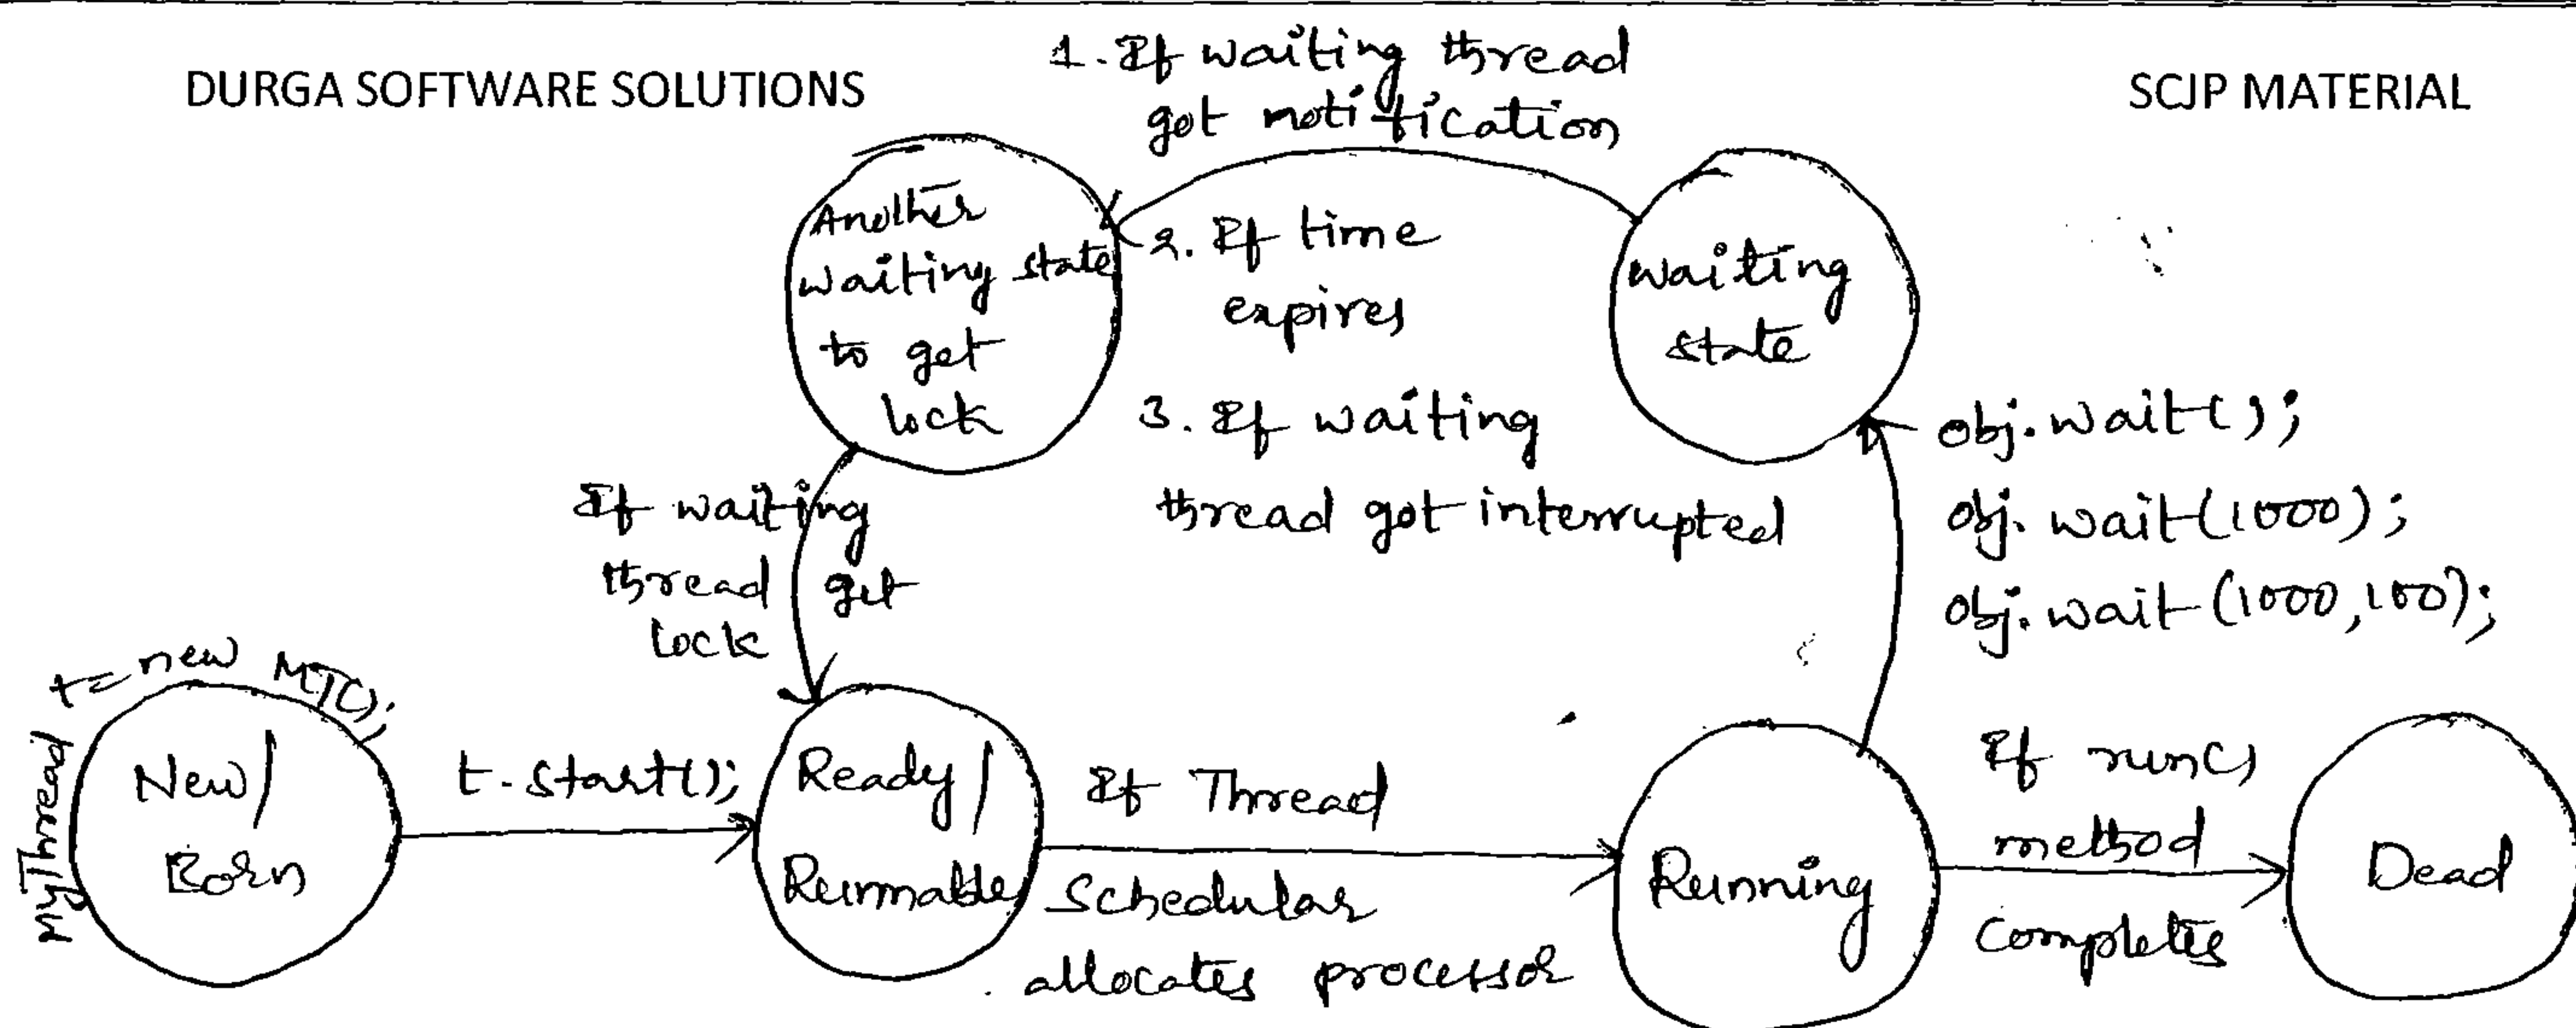 DURGA SOFTWARE SOLUTIONS
SCJP MATERIAL
1. If waiting thread
got notification
2. If time
expires
3. If waiting
thread got interrupted
Another
waiting state
to get
lock
waiting
state
obj.wait();
obj.wait(1000);
obj.wait(1000,100);
If waiting
thread get
lock
MyThread t=new MT();
New/
Born
t.start();
Ready/
Runnable
If Thread
Schedular
allocates processor
Running
If run()
method
completes
Dead